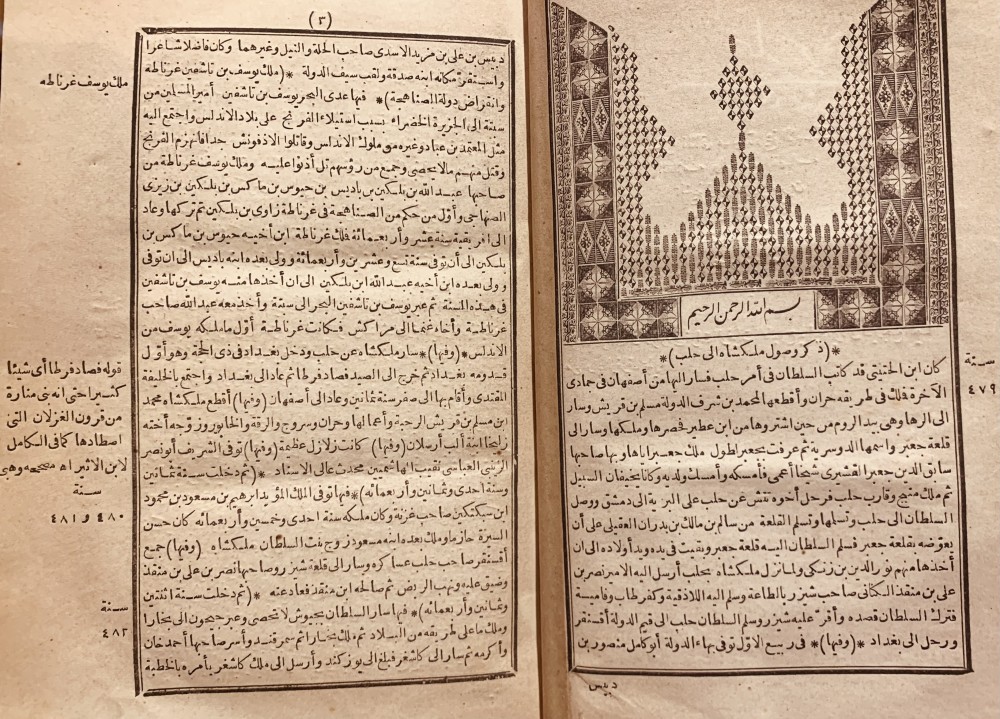 بسم الله الرحمن الرحيم
*(ذكر وصول ملكشاه الى حلب)*
كان ابن الحتيتى قد كاتب السلطان فى أمر حلب فسار اليها من أصفهان فى جمادى
الآخرة فلك فى طريقه حران وأقطعها لمحمد بن شرف الدولة مسلم بن قريش وسار
الى الرها وهى بيد الروم من حين اشتروها من ابن عطير فحصرها وملكها وسار الى
قلعة جعبر واسمها الدوسرية ثم عرفت بجعبر لطول ملك جعبر اياها وبها صاحبها
سابق الدين جعبر القشيرى شيخا أعمى فأمسكه وأمسك ولديه وكانا يخيفان السبيل
ثم ملك منبج وقارب حلب فرحل أخوه تتش عن حلب على البرية الى دمشق ووصل
السلطان الى حلب وتسلمها وتسلم القلعة من سالم بن مالك بن بدران العقيلى على أن
يعوضه بقلعة جعبر فسلم السلطان اليه قلعة جعبر وبقيت فى يده ويد أولاده الى ان
أخذها منهم نور الدين بن زنكى ولما نزل ملكشاه بحلب أرسل اليه الامير نصر بن
على بن منقذ الكنانى صاحب شيزر بالطاعة وسلم اليه اللاذقية وكفرطاب وفامية
فترك السلطان قصده وأقر عليه شيزر وسلم السلطان حلب الى قسيم الدولة أقسنقر
ورحل الى بغداد *(وفيها)* فى ربيع الاول توفى بهاء الدولة أبو كامل منصور بن
دبيس
سنة
٤٧٩
(٣)
دبيس بن على بن مزيد الاسدى صاحب الحلة والنيل وغيرهما وكان فاضلا شاعرا
واستقر مكانه ابنه صدقة ولقب سيف الدولة *(ملك يوسف بن تاشفين غرناطة
وانقراض دولة الصناهجة)* فيها عدى البحر يوسف بن تاشفين أمير المسلمين من
سبتة الى الجزيرة الخضراء بسبب استيلاء الفرنج على بلاد الاندلس واجتمع اليه
مثل المعتمد بن عباد وغيره من ملوك الاندلس وقاتلوا الاذفونش جدا فانهزم الفرنج
وقتل منهم ما لا يحصى وجمع من رؤسهم تل أذنوا عليه وملك يوسف غرناطة من
صاحبها عبد الله بن بلكين بن باديس بن حبوس بن ماكس بن بلكين بن زيرى
الصنهاجى وأول من حكم من الصناهجة فى غرناطة زاوى بن بلكين ثم تركها وعاد
الى افريقية سنة عشر وأربعمائة فلك غرناطة ابن أخيه حبوس بن ماكس بن
بلكين الى أن توفى سنة تسع وعشرين وأربعمائة وولى بعده ابنه باديس الى ان توفى
وولى بعده ابن أخيه عبد الله ابن بلكين الى ان أخذها منه يوسف بن تاشفين
فى هذه السنة ثم عبر يوسف بن تاشفين البحر الى سبتة وأخذ معه عبد الله صاحب
غرناطة وأخاه تميما الى مراكش فكانت غرناطة أول ما ملكه يوسف من
الاندلس *(وفيها)* سار ملكشاه عن حلب ودخل بغداد فى ذى الحجة وهو أول
قدومه بغداد ثم خرج الى الصيد فصاد فرطا ثم عاد الى بغداد واجتمع بالخليفة
المقتدى وأقام بها الى صفر سنة ثمانين وعاد الى أصفهان (وفيها) أقطع ملكشاه محمد
ابن مسلم بن قريش الرحبة وأعمالها وحران وسروج والرقة والخابور وزوجه أخته
زليخا ابنة ألب أرسلان (وفيها) كانت زلازل عظيمة (وفيها) توفى الشريف أبو نصر
الزينبى العباسى نقيب الهاشميين محدث عالى الاسناد *(ثم دخلت سنة ثمانين
وسنة احدى وثمانين وأربعمائة)* فيها توفى الملك المؤيد ابراهيم بن مسعود بن محمود
ابن سبكتكين صاحب غزنة وكان ملكه سنة احدى وخمسين وأربعمائة كان حسن
السيرة حازما وملك بعده ابنه مسعود زوج بنت السلطان ملكشاه (وفيها) جمع
أقسنقر صاحب حلب عساكره وسار الى قلعة شيزر وصاحبها نصر بن على بن منقذ
وضيق عليه ونهب الربض ثم صالحه ابن منقذ فعاد عنه *(ثم دخلت سنة اثنتين
وثمانين وأربعمائة)* فيها سار السلطان بجيوش لا تحصى وعبر جيحون الى بخارا
وملك ما على طريقه من البلاد ثم ملك بخارا ثم سمرقند وأسر صاحبها أحمد خان
وأكرمه ثم سار الى كاشغر فبلغ الى يوزكند وأرسل الى ملك كاشغر يأمره بالخطبة
ملك يوسف غرناطه
قوله فصاد فرطا أى شيئا
كثيرا حتى انه بنى منارة
من قرون الغزلان التى
اصطادها كما فى الكامل
لابن الاثير اه مصححه وهبى
سنة
٤٨٠ و ٤٨١
سنة
٤٨٢